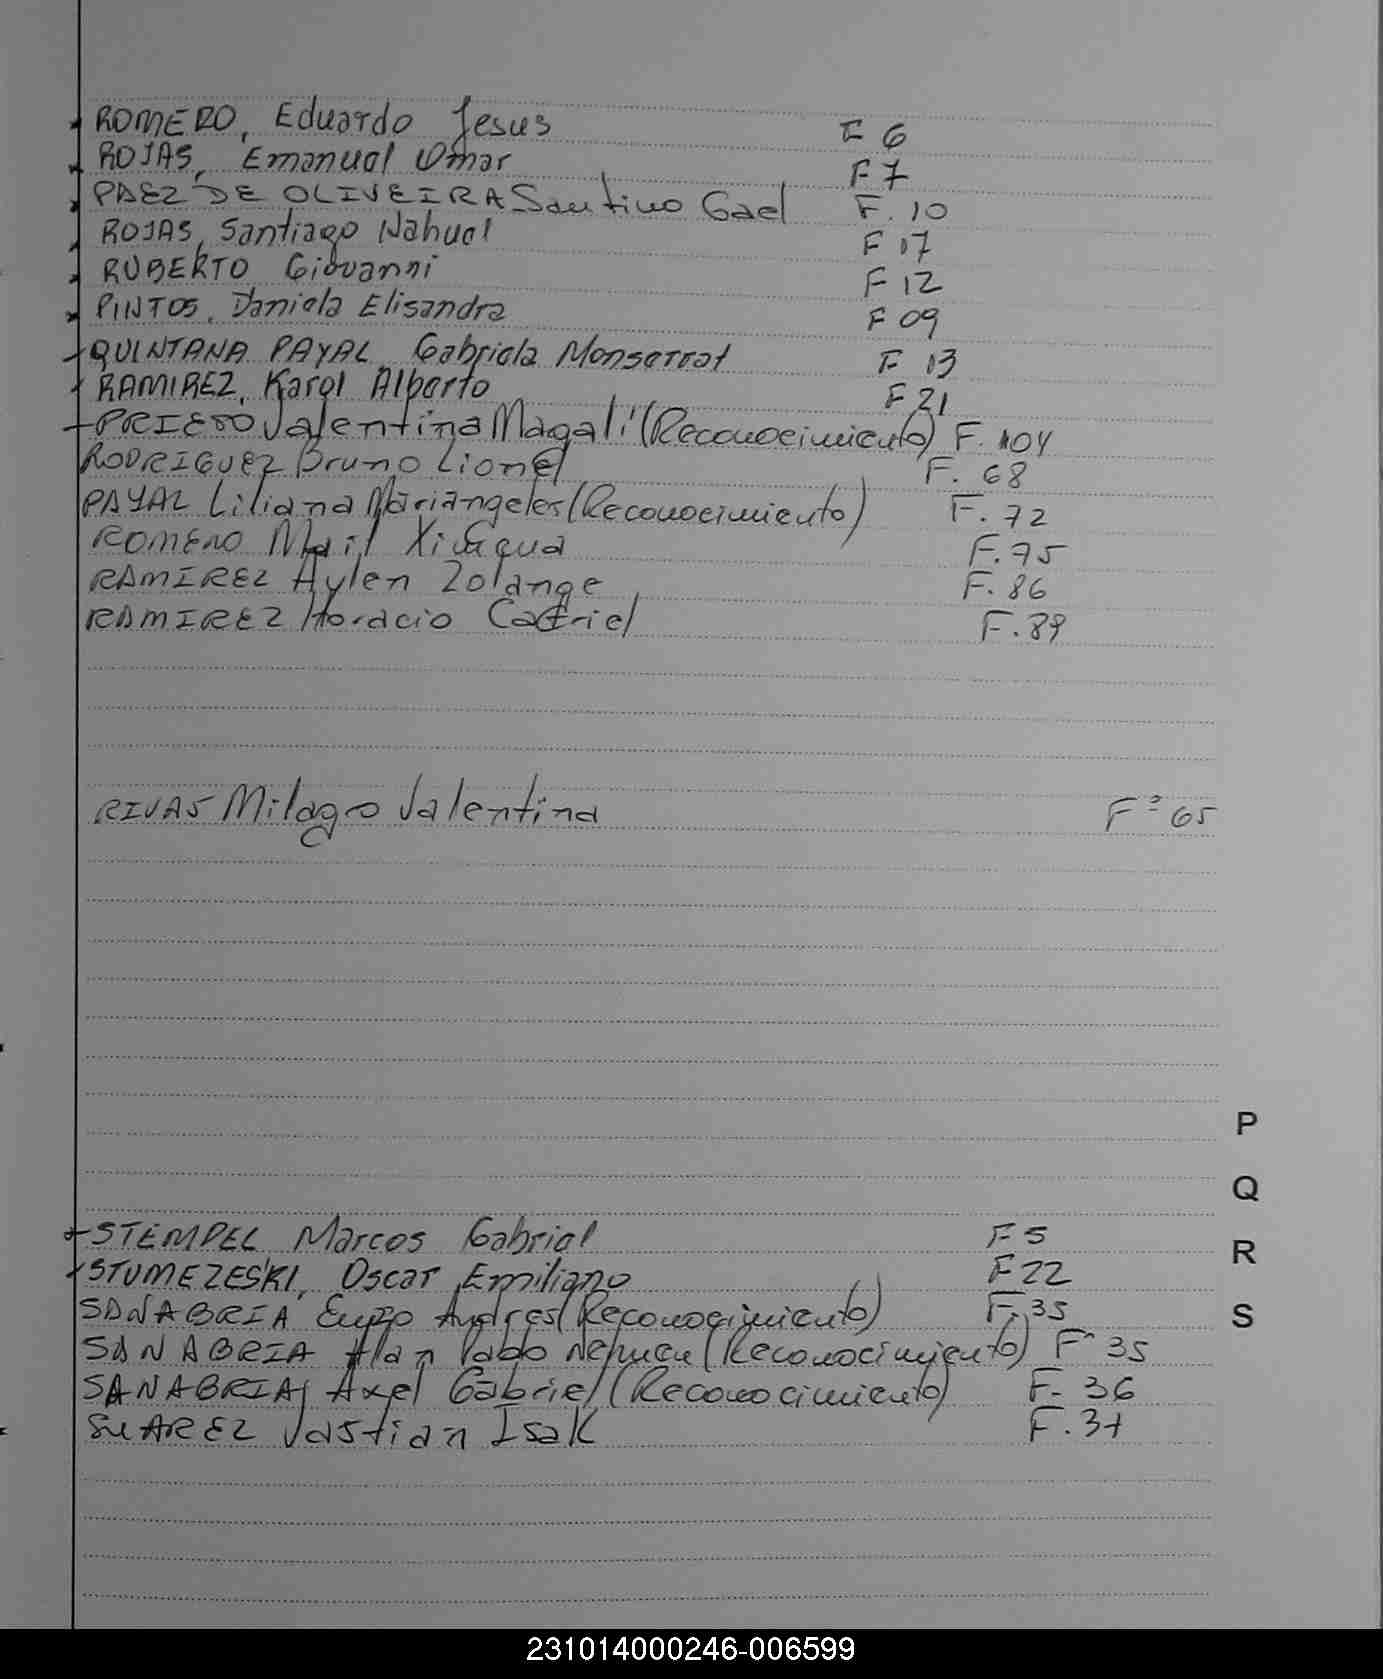 ROMERO, Eduardo Jesus F 6
ROJAS, Emanuel Omar F 7
PAEZ DE OLIVEIRA Santino Gael F. 10
ROJAS, Santiago Nahuel F 17
RUBERTO Giovanni F 12
PINTOS, Daniela Elisandra F 09
QUINTANA PAYAL Gabriela Monserrat F 13
RAMIREZ, Karol Alberto F 21
PRIETO Valentina Magali (Reconocimiento) F. 104
RODRIGUEZ Bruno Lionel F. 68
PAYAL Liliana Mariangeles (Reconocimiento) F. 72
ROMERO F. 75
RAMIREZ Aylen Zolange F. 86
RAMIREZ Horacio Catriel F. 89
RIVAS Milagro Valentina Fº 65
P
Q
STEMPEL Marcos Gabriel F 5
R
STUMEZESKI, Oscar Emiliano F 22
SANABRIA Enzo Andres (Reconocimiento) F. 35
S
SANABRIA Alan (Reconocimiento) F 35
SANABRIA, Axel Gabriel (Reconocimiento) F. 36
SUAREZ Vastian Isak F. 37
231014000246-006599